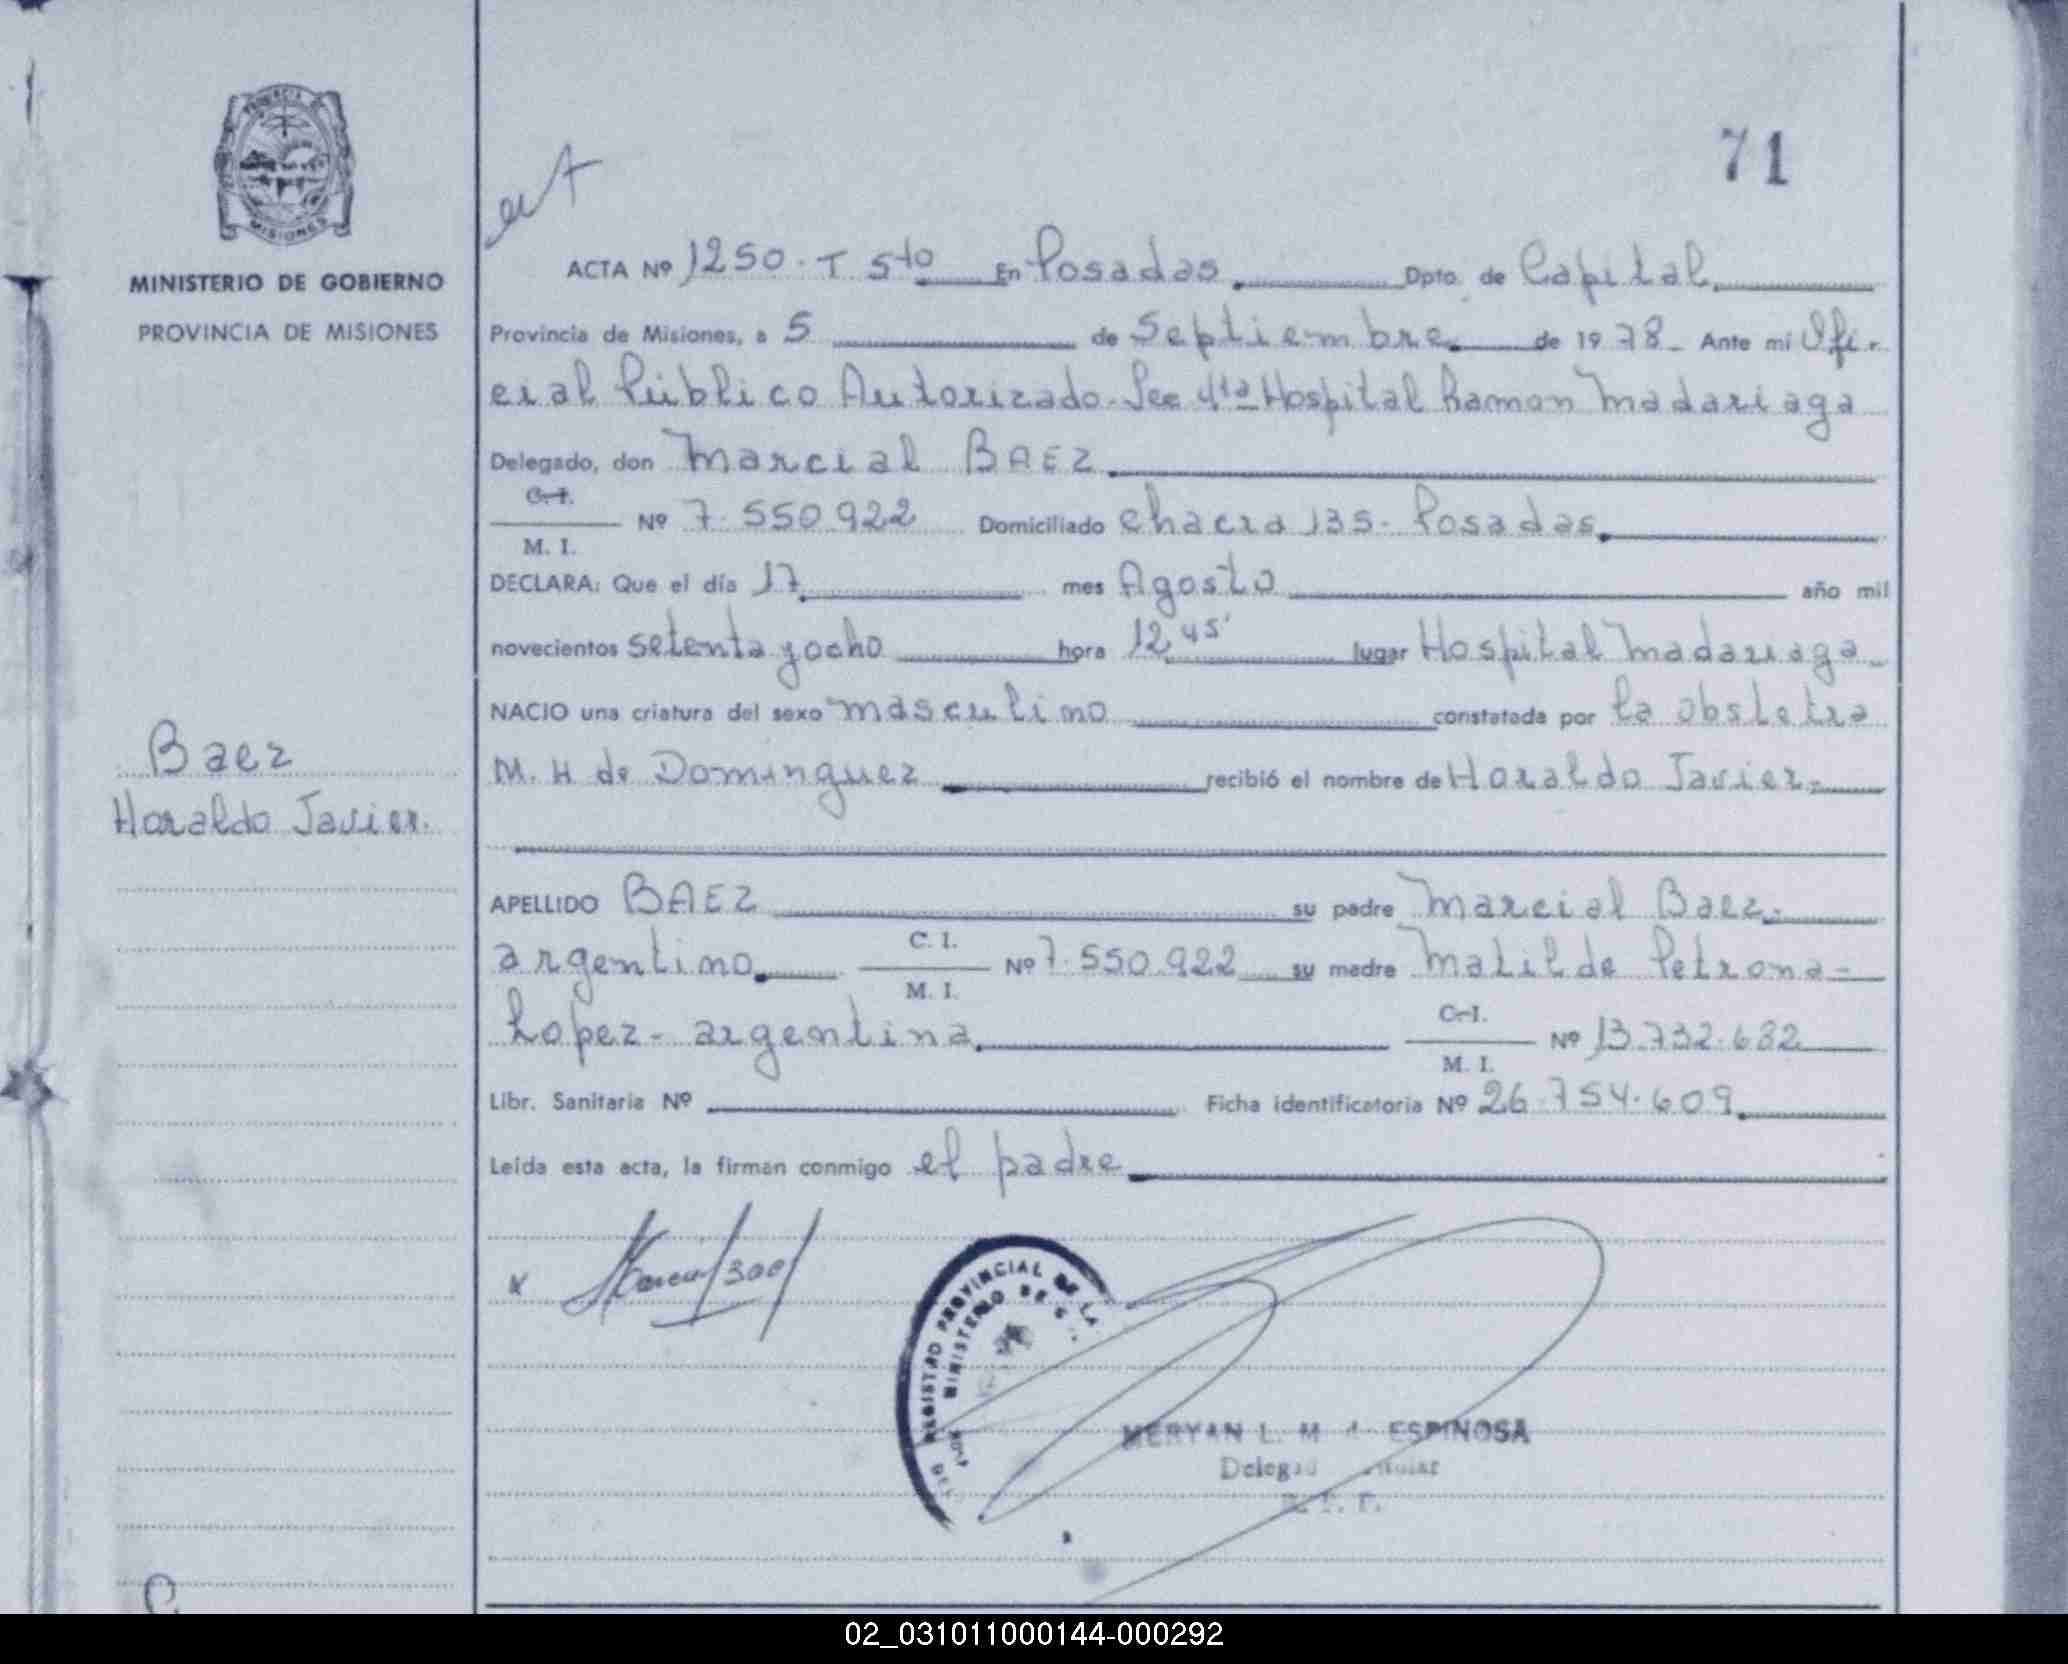 PROVINCIA DE
MISIONES
MINISTERIO DE GOBIERNO
PROVINCIA DE MISIONES
Baez
Haraldo Javier.
71
ACTA Nº 1250. T 5to En Posadas Dpto. de Capital
Provincia de Misiones, a 5 de Septiembre de 1978- Ante mi Ofi-
cial Público Autorizado- Sec 4ta Hospital Ramon Madariaga
Delegado, don Marcial BAEZ
C. I.
Nº 7.550.922 Domiciliado Chacra 135- Posadas
M. I.
DECLARA: Que el día 17 mes Agosto año mil
novecientos setenta y ocho hora 12 45' lugar Hospital Madariaga-
NACIO una criatura del sexo masculino constatada por la obstetra
M. H de Dominguez recibió el nombre de Haraldo Javier-
APELLIDO BAEZ su padre Marcial Baez-
argentino C. I. Nº 7.550.922 su madre Matilde Petrona-
M. I.
Lopez- argentina C. I. Nº 13.732.632
M. I.
Libr. Sanitaria Nº Ficha identificatoria Nº 26.754.609
Leída esta acta, la firman conmigo el padre
x
REGISTRO PROVINCIAL DE LA
MINISTERIO DE G
MERYAN L. M ESPINOSA
02_031011000144-000292